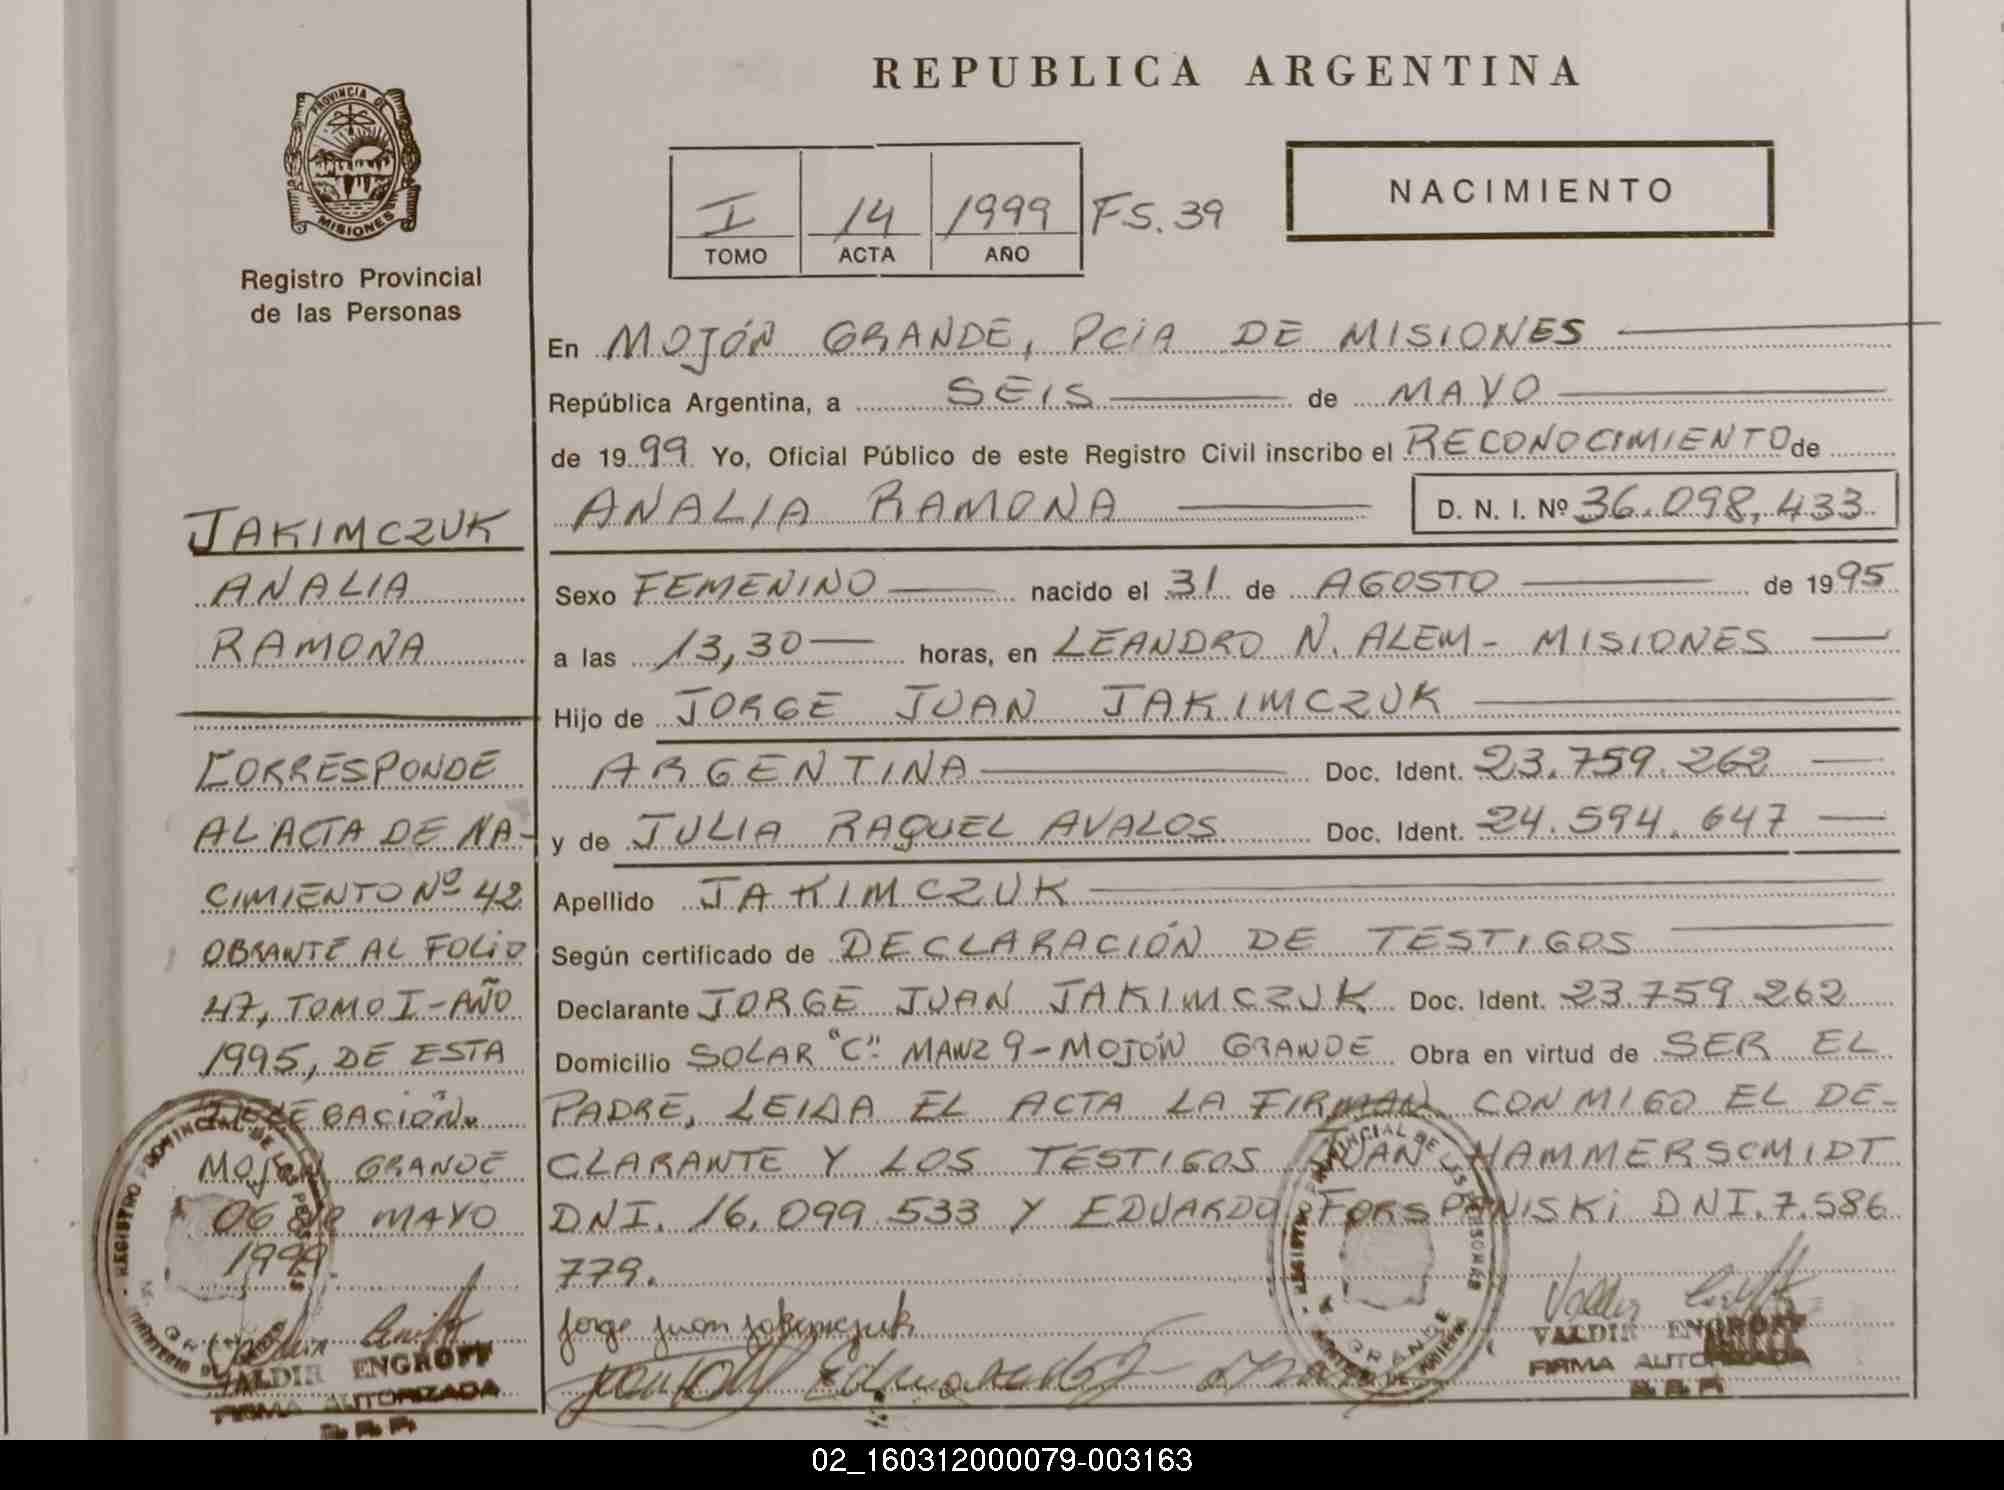 REPUBLICA ARGENTINA
PROVINCIA DE
MISIONES
Registro Provincial
de las Personas
I 14 1999 FS. 39
TOMO ACTA AÑO
NACIMIENTO
JAKIMCZUK
ANALIA
RAMONA
CORRESPONDE
AL ACTA DE NA-
CIMIENTO Nº 42
OBRANTE AL FOLIO
47, TOMO I - AÑO
1995, DE ESTA
DELEGACIÓN.
MOJÓN GRANDE
06 DE MAYO
1999.
VALDIR ENGROFF
FIRMA AUTORIZADA
En MOJÓN GRANDE, PCIA DE MISIONES
República Argentina, a SEIS de MAYO
de 1999 Yo, Oficial Público de este Registro Civil inscribo el RECONOCIMIENTO de
ANALIA RAMONA D. N. I. Nº 36.098,433
Sexo FEMENINO nacido el 31 de AGOSTO de 1995
a las 13,30 horas, en LEANDRO N. ALEM - MISIONES
Hijo de JORGE JUAN JAKIMCZUK
ARGENTINA Doc. Ident. 23.759.262
y de JULIA RAQUEL AVALOS Doc. Ident. 24.594.647
Apellido JAKIMCZUK
Según certificado de DECLARACIÓN DE TESTIGOS
Declarante JORGE JUAN JAKIMCZUK Doc. Ident. 23.759.262
Domicilio SOLAR "C" MANZ 9 - MOJÓN GRANDE Obra en virtud de SER EL
PADRE, LEIDA EL ACTA LA FIRMAN CONMIGO EL DE-
CLARANTE Y LOS TESTIGOS JUAN HAMMERSCMIDT
DNI. 16.099.533 Y EDUARDO DNI. 7.586
779.
Jorge Juan Jakimczuk
VALDIR ENGROFF
FIRMA AUTORIZADA
02_160312000079-003163